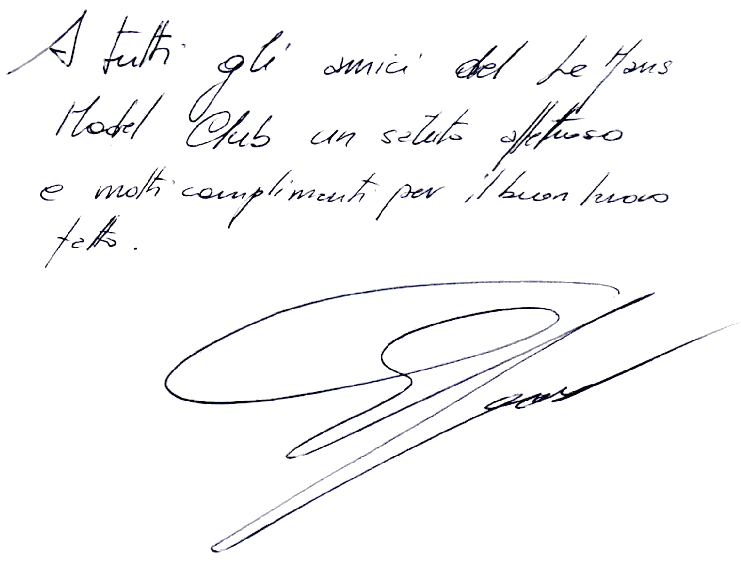 A tutti gli amici del Le Mans
Model Club un saluto affettuoso
e molti complimenti per il buon lavoro
fatto.